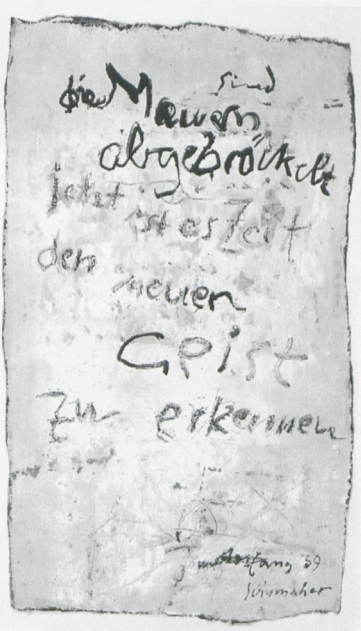 die Mauern sind
abgebröckelt
jetzt ist es Zeit
den
neuen
Geist
zu erkennen
'59
Schumacher